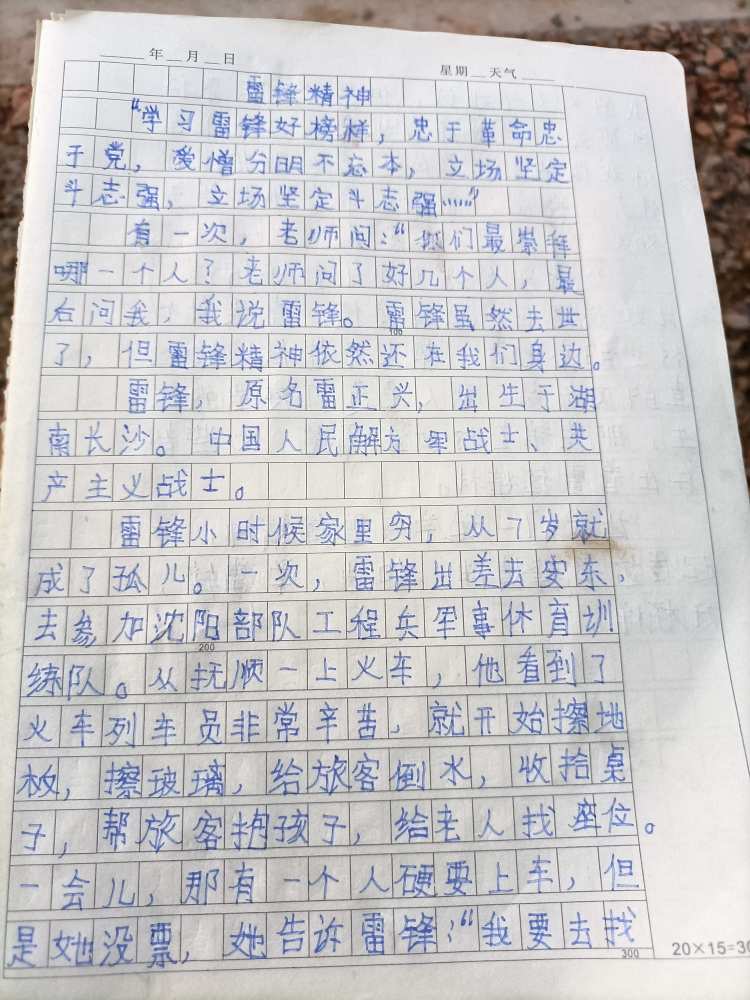 年 月 日 星期 天气
雷锋精神
“学习雷锋好榜样，忠于革命忠
于党，爱憎分明不忘本，立场坚定
斗志强，立场坚定斗志强……”
有一次，老师问：“你们最崇拜
哪一个人？老师问了好几个人，最
后问我，我说雷锋。雷锋虽然去世
100
了，但雷锋精神依然还在我们身边。
雷锋，原名雷正兴，出生于湖
南长沙。中国人民解放军战士、共
产主义战士。
雷锋小时候家里穷，从7岁就
成了孤儿。一次，雷锋出差去安东，
去参加沈阳部队工程兵军事体育训
200
练队。从抚顺一上火车，他看到了
火车列车员非常辛苦，就开始擦地
板，擦玻璃，给旅客倒水，收拾桌
子，帮旅客抱孩子，给老人找座位。
一会儿，那有一个人硬要上车，但
是她没票，她告诉雷锋：“我要去找
300
20×15=30